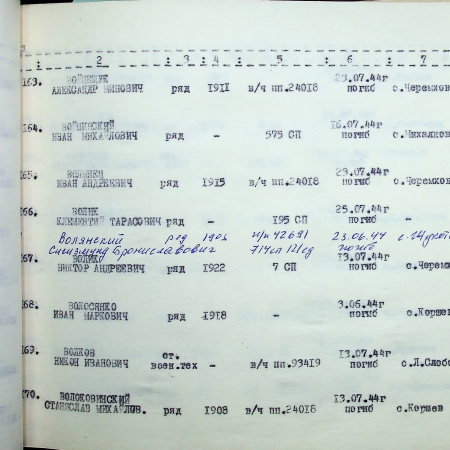 : 2 : 3 : 4 : 5 : 6 : 7
163. ВОЙЦЕЩУК 23.07.44г
АЛЕКСАНДР МИНОВИЧ ряд 1911 в/ч пп.24018 погиб с.Черемхов
164. ВОЙЦЕВСКИЙ 16.07.44г
ИВАН МИХАЙЛОВИЧ ряд - 575 СП погиб с.Михалков
165. ВОЛЫНЕЦ 23.07.44г
ИВАН АНДРЕЕВИЧ ряд 1915 в/ч пп.24018 погиб с.Черемхо
166. ВОЛИК 25.07.44г
КЛЕМЕНТИЙ ТАРАСОВИЧ ряд - 195 СП погиб -
Волянский ряд 1903 п/п 42691 23.06.44
Сигизмунд Брониславович 714сп 121сд погиб
167. 13.07.44г
ВИКТОР АНДРЕЕВИЧ ряд 1922 7 СП погиб с.Черемх
168. ВОЛОСЯНКО 3.06.44г
ИВАН МАРКОВИЧ ряд 1918 - погиб с.Коршев
169. ВОЛКОВ ст. 13.07.44г
НИКОН ИВАНОВИЧ воен.тех - в/ч пп.93419 погиб с.Л.Слобо
170. ВОЛОКОВИНСКИЙ 13.07.44г
СТАНИСЛАВ МИХАЙЛОВ. ряд 1908 в/ч пп.24018 погиб с.Коршев